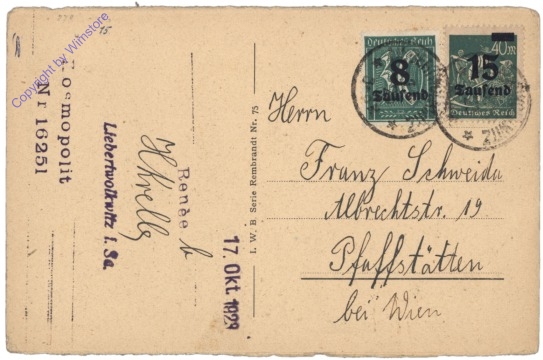 Copyright by Wimstore
Kosmopolit
Nr 16251
Liebertwolkwitz i. Sa.
Renée b
HKrelle
17. Okt. 1923
I. W. B. Serie Rembrandt Nr. 75
Deutsches Reich
8
Tausend
40 m
15
Tausend
Deutsches Reich
Herrn
Franz Schweida
Albrechtstr. 19.
Pfaffstätten
bei Wien.